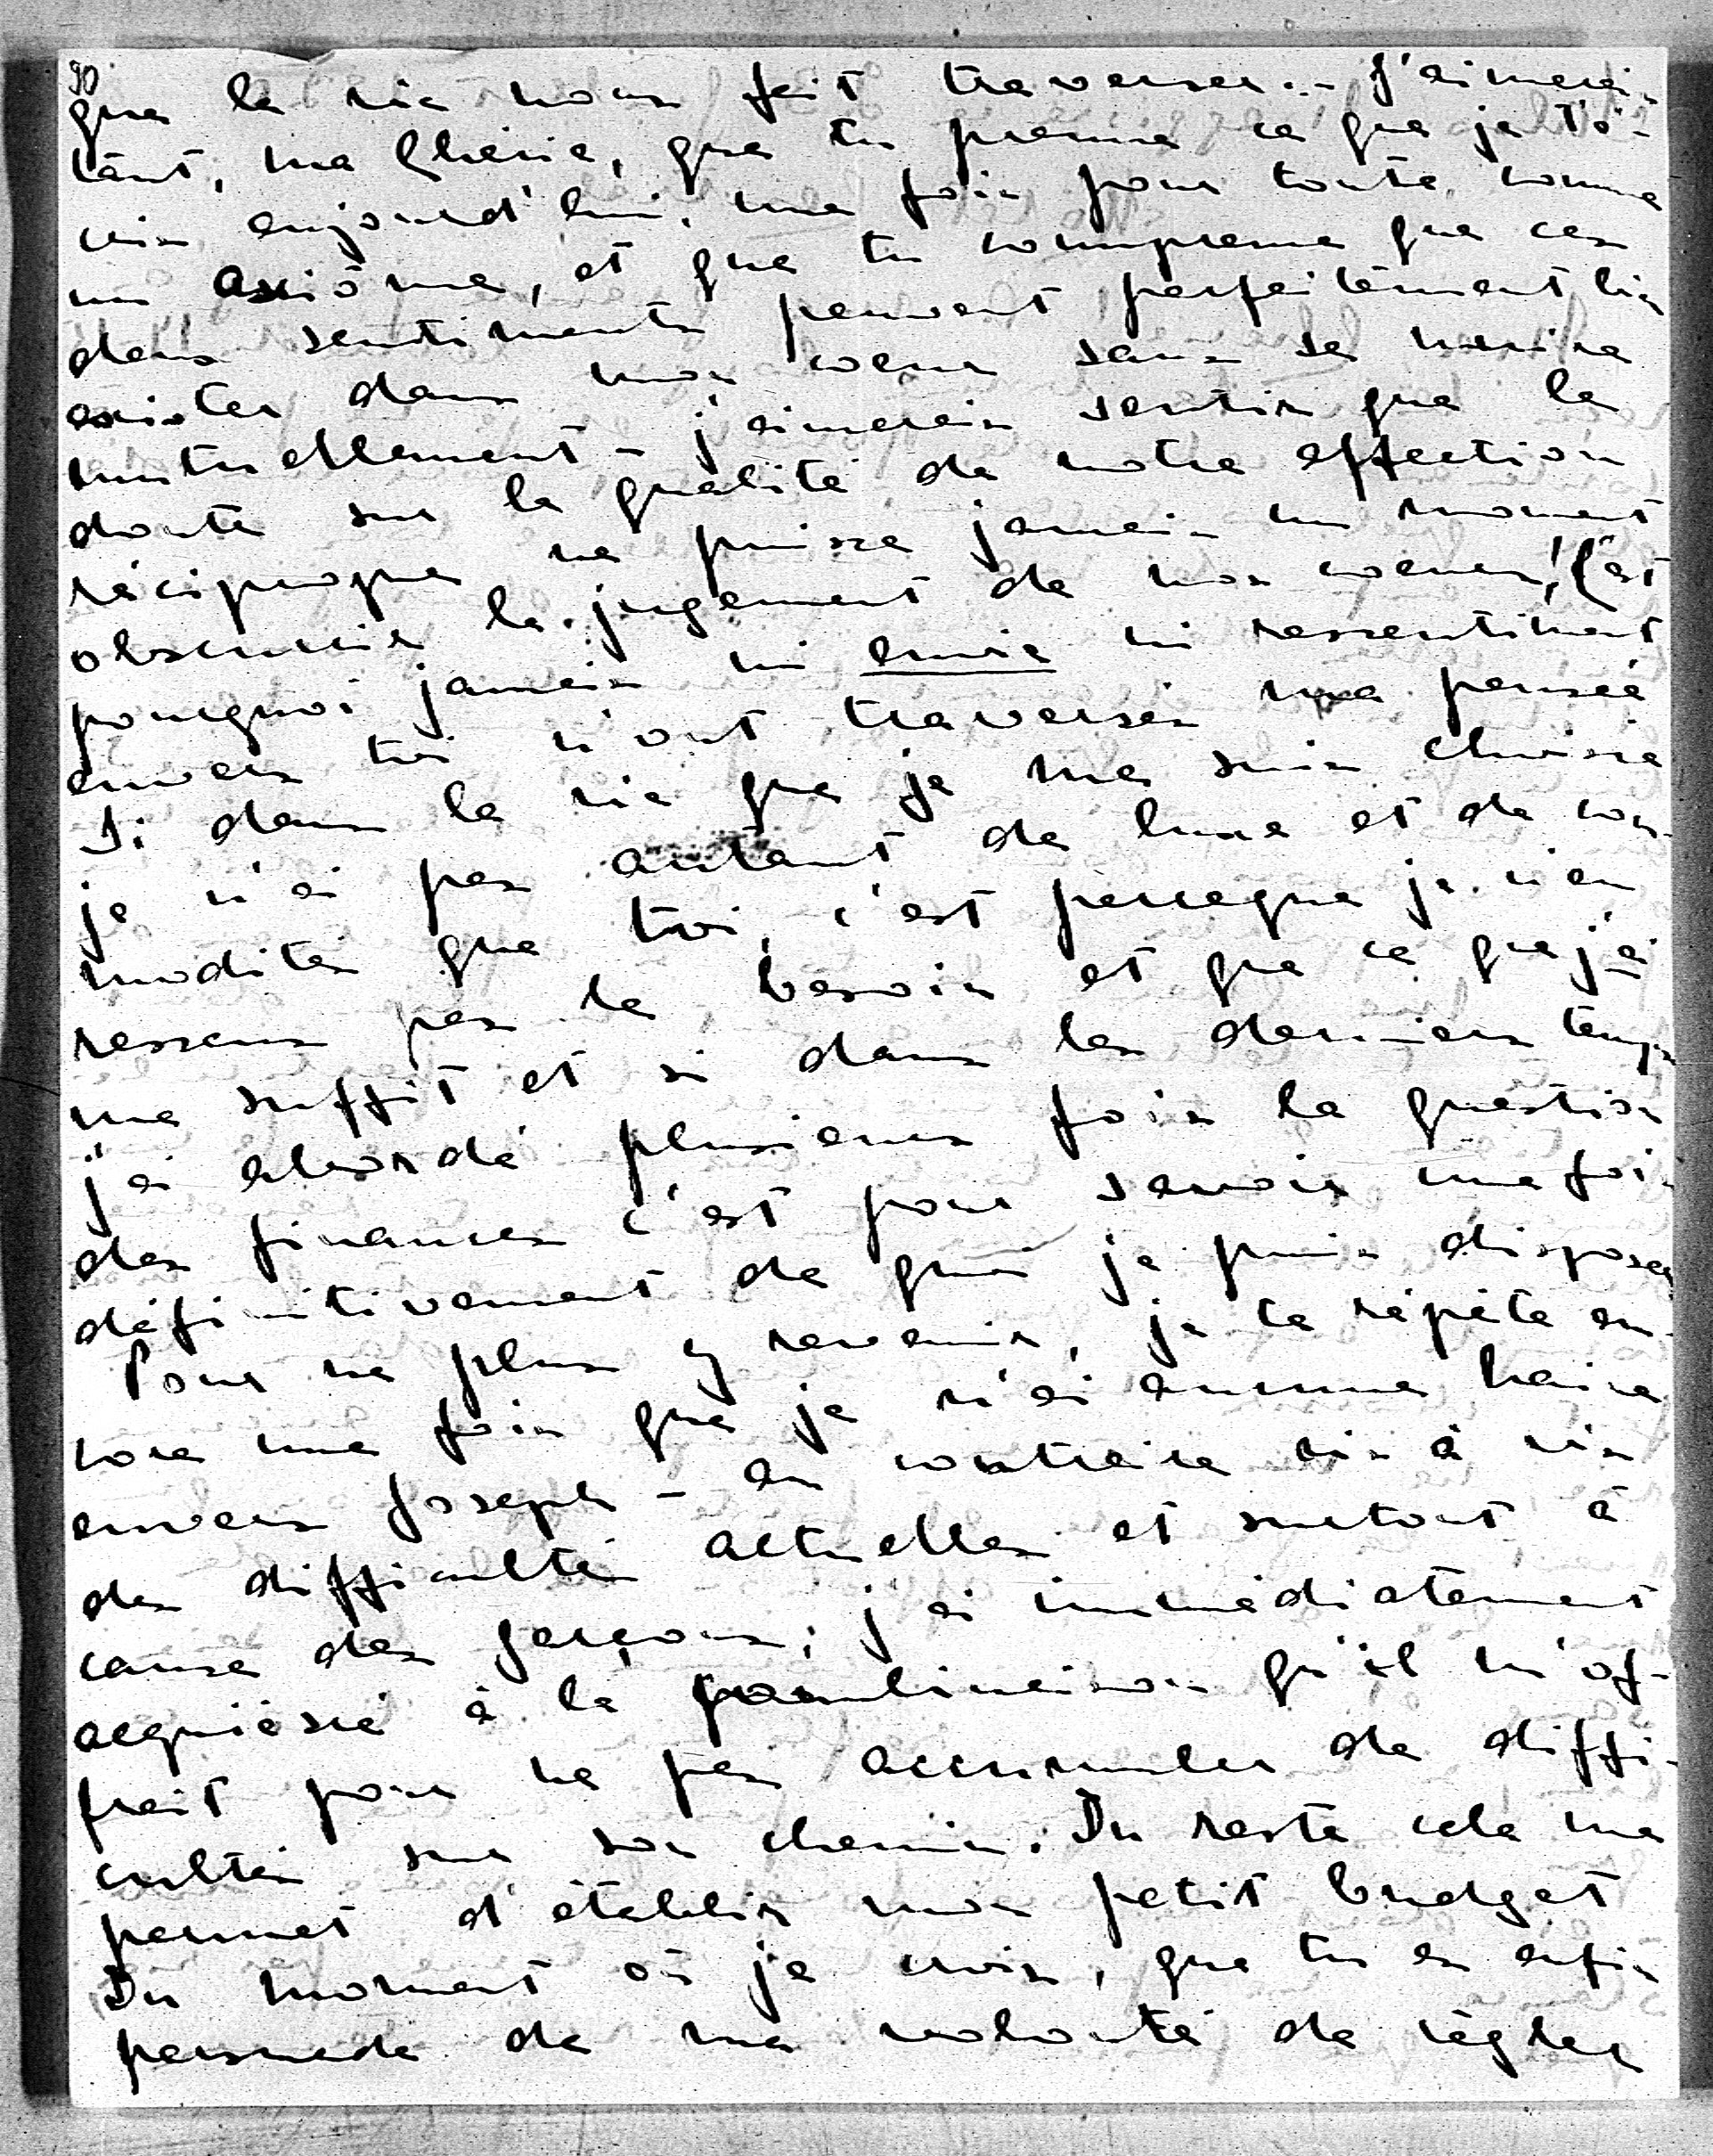 90
que la vie nous fait traverser... J'aimerais
tant, ma Chérie, que tu prenne ce que je t'é-
cris aujourd'hui, une fois pour toute, comme
un axiôme, et que tu comprenne que ces
deux sentiments peuvent perfeitement bien
exister dans mon coeur sans se nuire
mutuellement - j'aimerais sentir que le
doute sur la qualité de notre affection
réciproque ne puisse jamais un moment
obscurcir le jugement de nos coeurs! C'est
pourquoi jamais ni envie ni ressentiment
envers toi n'ont traverser ma pensée
Si dans la vie que je me suis choisie
je n'ai pas autant de luxe et de com-
modités que toi, c'est parceque je n'en
ressens pas le besoin et que ce que j'ai
me suffit et si dans les derniers temps
j'ai abordé plusieurs fois la question
des finances c'est pour savoir une fois
définitivement de quoi je puis disposer
Pour ne plus y revenir, je te répète en-
core une fois que je n'ai aucune haine
envers Joseph - au contraire vis à vis
des difficultés actuelles et surtout à
cause des garçons; j'ai immédiatement
acquiéscé à la combinaison qu'il m'of-
frait pour ne pas accumuler de diffi-
cultés sur son chemin. Du reste cela me
permet d'établir mon petit budget
Du moment où je crois, que tu es enfin
persuade de ma volonté de régler